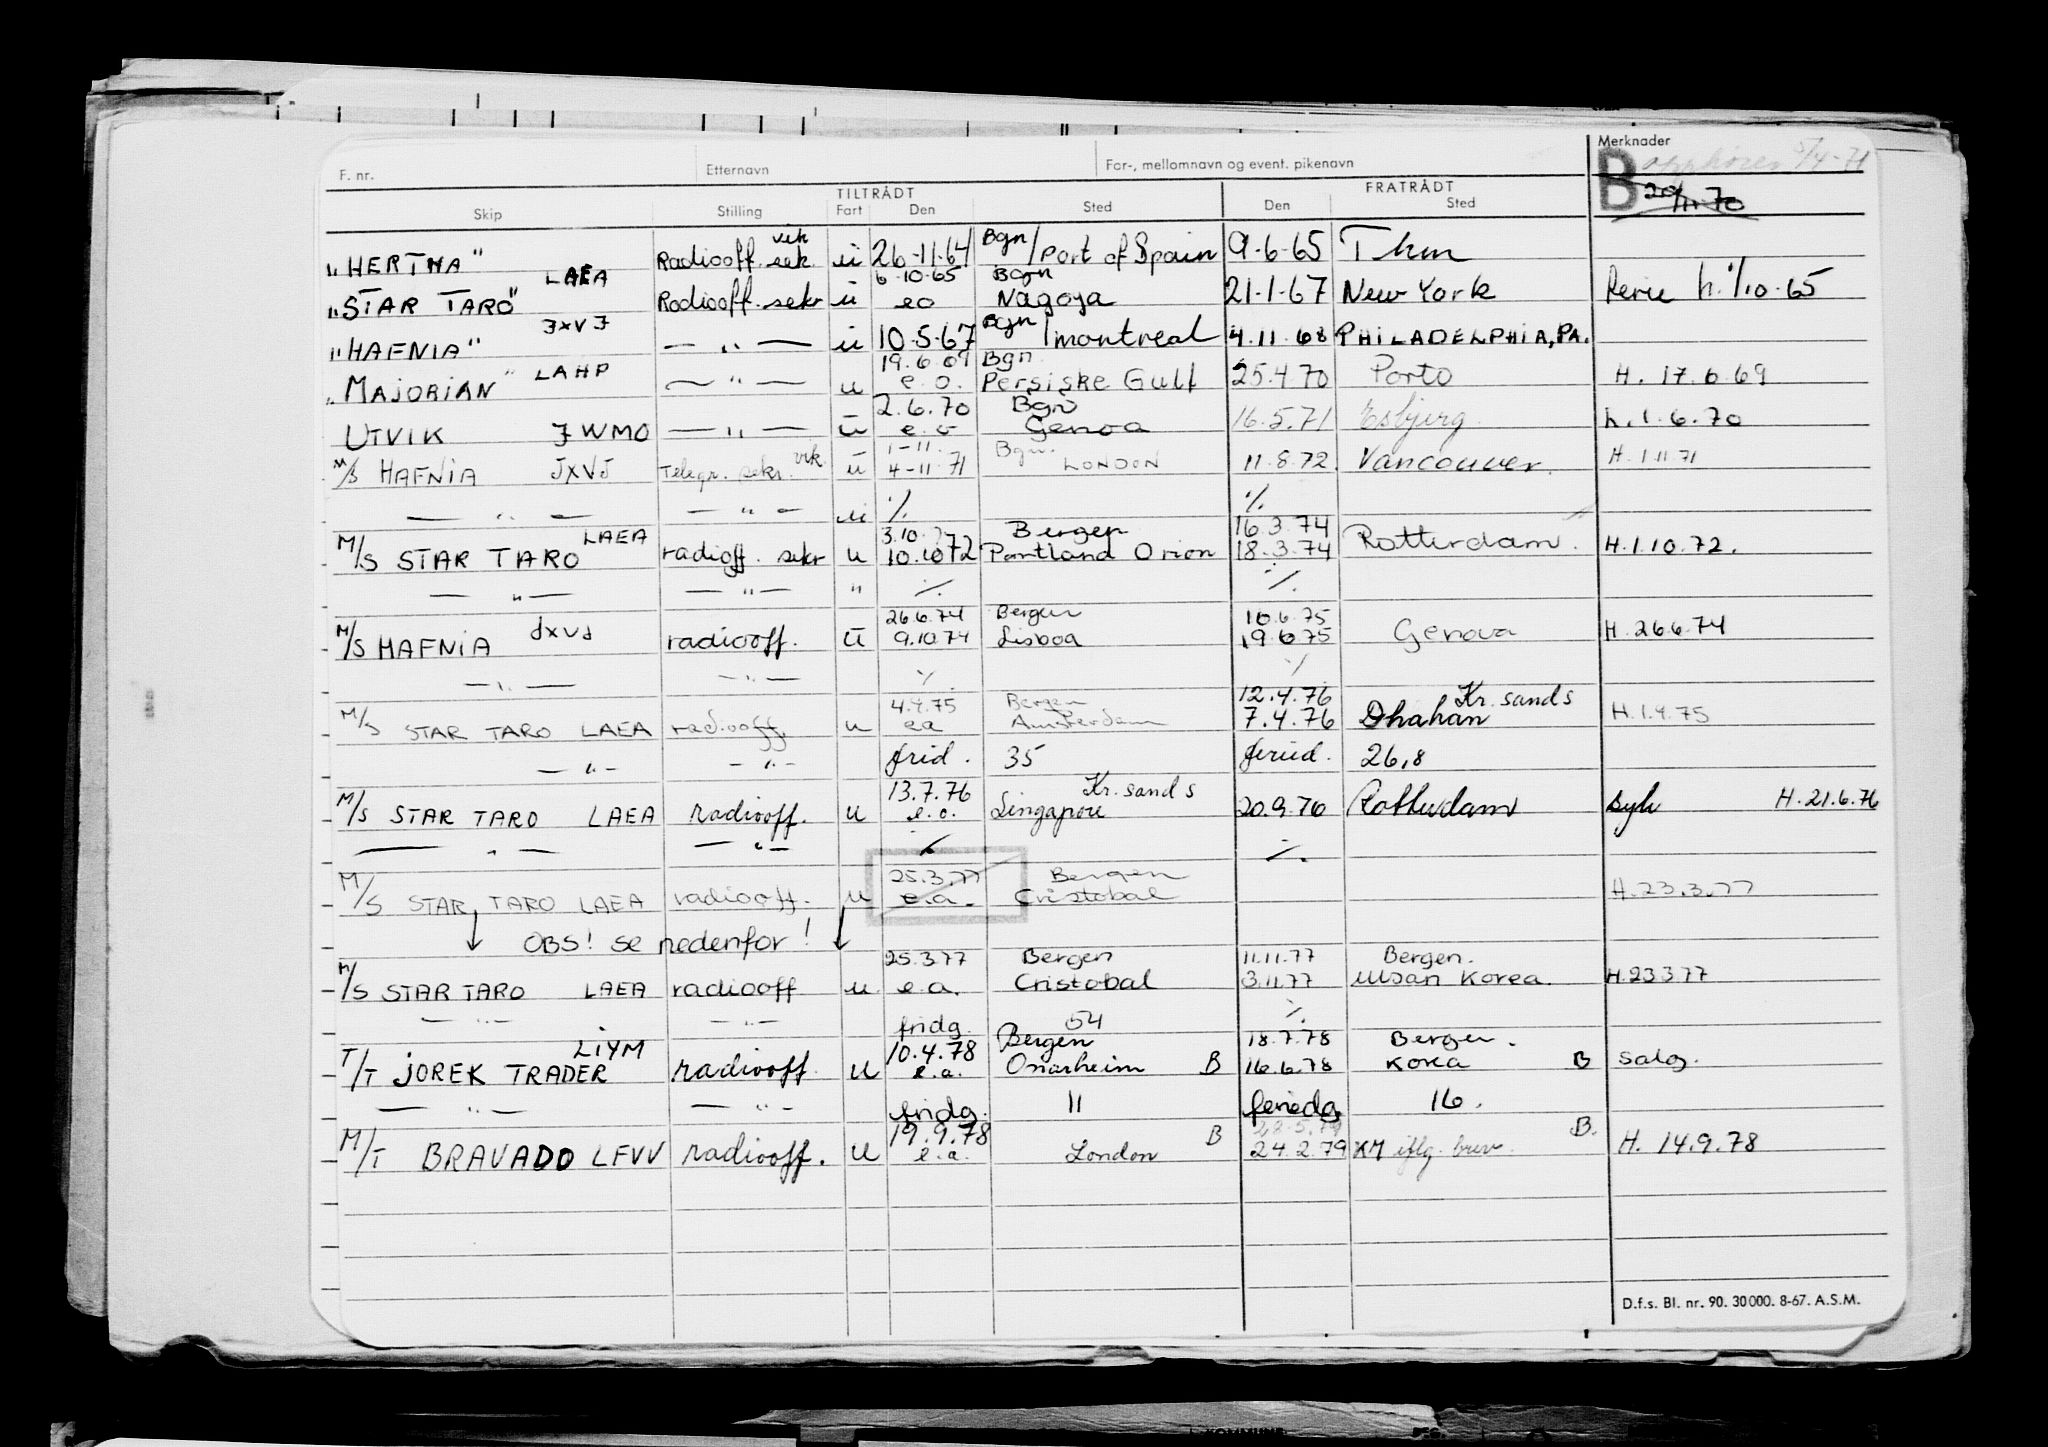 F. nr. Etternavn For-, mellomnavn og event. pikenavn Merknader
B opphører 5/4-71
TILTRÅDT FRATRÅDT
20/11-70
Skip Stilling Fart Den Sted Den Sted
"HERTHA" Radiooff. sek. vik ü 26-11-64 Bgn/Port of Spain 9-6-65 Thm
6-10-65 Bgn
"STAR TARO" LAEA Radiooff. sekr ü eo Nagoya 21-1-67 New York Ferie h. 1/10-65
"HAFNIA" JXVJ — " — ü 10-5-67 Bgn/montreal 4.11.68 PHILADELPHIA, PA.
19.6.69 Bgn.
"MAJORIAN" LAHP — " — u e.o. Persiske Gulf 25.4.70 Porto H. 17.6.69
2.6.70 Bgn
UTVIK JWMO — " — ü e.o Genoa 16.5.71 Esbjerg h.1.6.70
1-11. Bgn.
M/S HAFNIA JXVJ Telegr. sekr. vik. ü 4-11-71 LONDON 11.8.72 Vancouver. H.1.11.71
— " — — " — ü ./. ./.
3.10.72 Bergen 16.3.74
M/S STAR TARO LAEA radioff. sekr u 10.10.72 Portland Orion 18.3.74 Rotterdam. H.1.10.72.
— " — — " — " ./. ./.
26.6.74 Bergen 10.6.75
M/S HAFNIA JXVJ radiooff. ü 9.10.74 Lisboa 19.6.75 Genova H. 26.6.74
— " — — " — ./. ./.
4.4.75 Bergen 12.4.76 Kr. sand s
M/S STAR TARO LAEA radiooff. u ea Amsterdam 7.4.76 Dhahan H.1.4.75
— " — — " — frid. 35 feried. 26,8
13.7.76 Kr. sand s
M/S STAR TARO LAEA radiooff. u e.o. Singapore 20.9.76 Rotterdam syk H.21.6.76
— " — — " — ./. ./.
25.3.77 Bergen
M/S STAR TARO LAEA radiooff. u e.a. Cristobal H.23.3.77
↓ OBS! se nedenfor! ↓
25.3.77 Bergen 11.11.77 Bergen.
M/S STAR TARO LAEA radiooff u. e.a. Cristobal 3.11.77 Ulsan Korea. H.23.3.77
— " — — " — fridg. 54 ./.
10.4.78 Bergen 18.7.78 Bergen.
T/T JOREK TRADER LIYM radiooff. u e.a. Onarheim B 16.6.78 Korea B salg.
— " — — " — fridg. 11 feriedg 16.
19.9.78 B 28.5.79 B.
M/T BRAVADO LFVV radiooff. u e.a. London 24.2.79 KM iflg. brev. H. 14.9.78
D.f.s. Bl. nr. 90. 30000. 8-67. A.S.M.